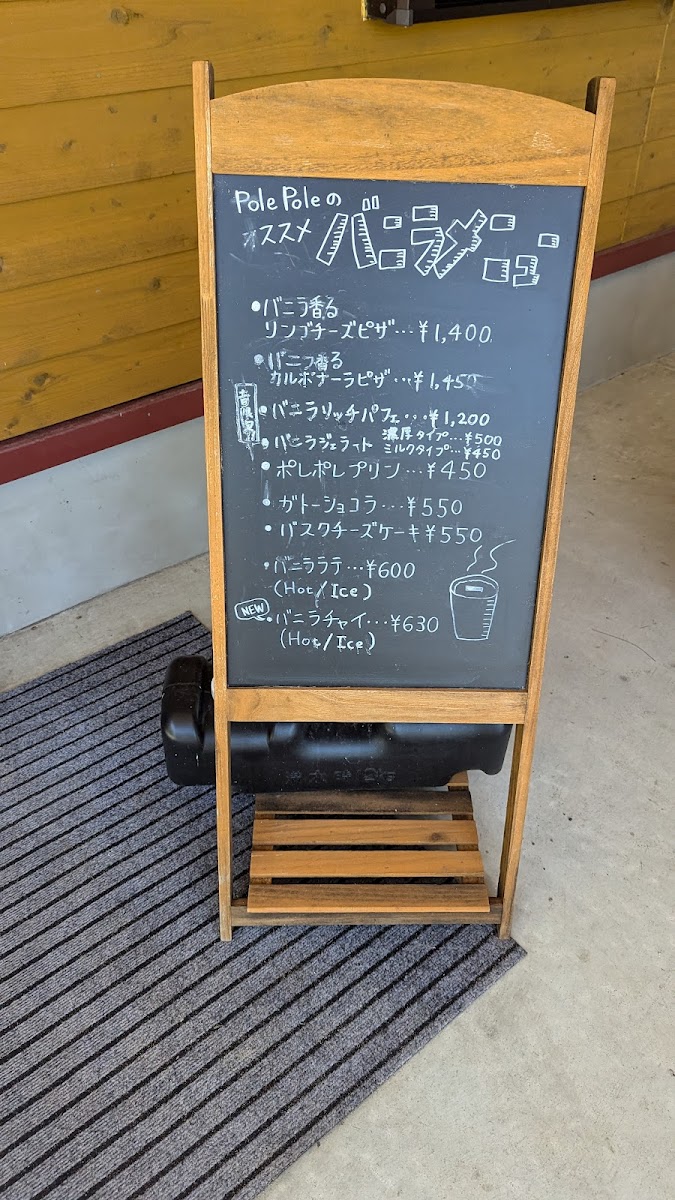 Pole Poleの
オススメ バニラメニュー
・バニラ香る
リンゴチーズピザ…¥1,400
・バニラ香る
カルボナーラピザ…¥1,450
・バニラリッチパフェ…¥1,200
・バニラジェラート 濃厚タイプ…¥500
ミルクタイプ…¥450
・ポレポレプリン…¥450
・ガトーショコラ…¥550
・バスクチーズケーキ¥550
・バニララテ…¥600
(Hot/Ice)
NEW ・バニラチャイ…¥630
(Hot/Ice)